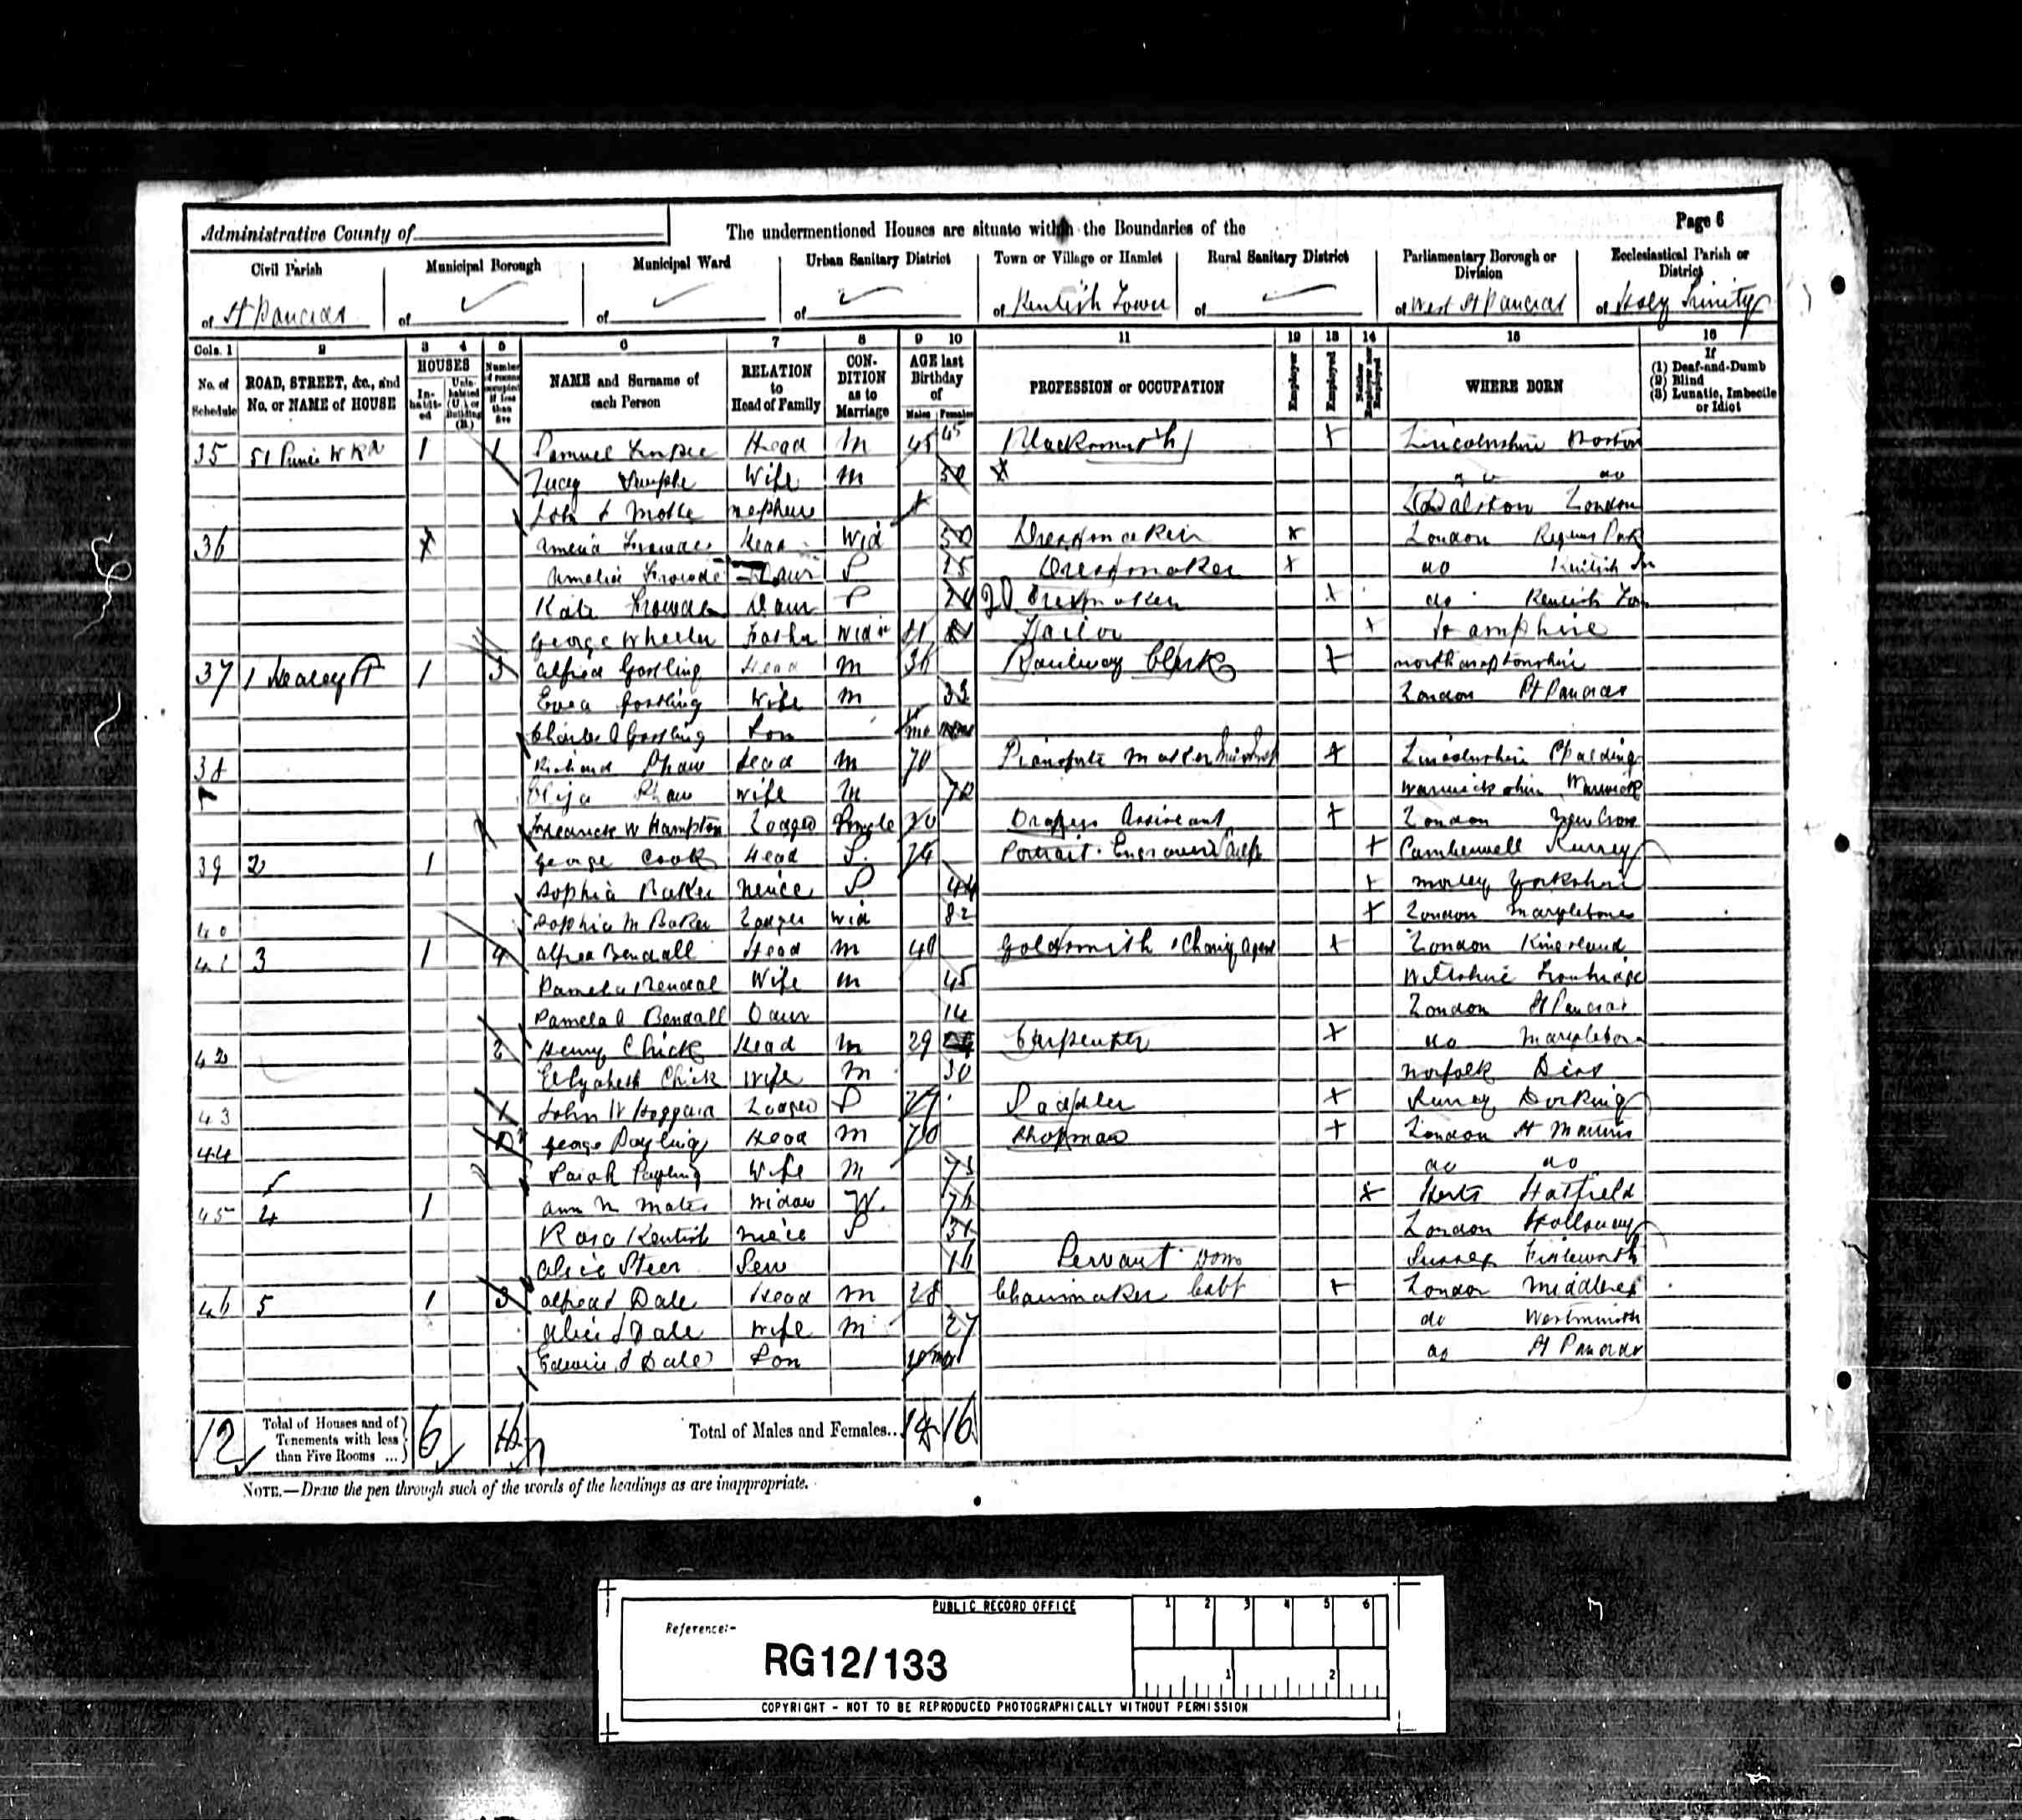 Administrative County of
The undermentioned Houses are situate within the Boundaries of the
Page 6
Civil Parish
of St Pancras
Municipal Borough
of
Municipal Ward
of
Urban Sanitary District
of
Town or Village or Hamlet
of Kentish Town
Rural Sanitary District
of
Parliamentary Borough or Division
of West St Pancras
Ecclesiastical Parish or District
of Holy Trinity
Cols. 1 2 3 4 5 6 7 8 9 10 11 12 13 14 15 16
No. of Schedule
ROAD, STREET, &c., and No. or NAME of HOUSE
HOUSES
Inhabited
Uninhabited (U.), or Building (B.)
Number of rooms occupied if less than five
NAME and Surname of each Person
RELATION to Head of Family
CONDITION as to Marriage
AGE last Birthday of
Males Females
PROFESSION or OCCUPATION
Employer
Employed
Neither Employer nor Employed
WHERE BORN
If
(1) Deaf-and-Dumb
(2) Blind
(3) Lunatic, Imbecile or Idiot
35 51 1 1 Samuel Head M 45 Blacksmith Lincolnshire Boston
Lucy Wife M do do
nephew Dalston London
36 Amelia Head Wid 50 Dressmaker London Regents Park
Amelia Daur S 25 Dressmaker do Kentish Tn
Kate Daur S Dressmaker do Kentish Tn
George Wheeler Father Widr 81 Tailor Hampshire
37 1 Healey St 1 3 Alfred Gostling Head M 36 Railway Clerk Northamptonshire
Gostling Wife M 33 London St Pancras
Charles A Gostling Son
38 Richard Shaw Head M 70 Pianoforte Lincolnshire Spalding
Eliza Shaw Wife M 72 Warwickshire Warwick
Frederick W Hampton Lodger Single 20 Drapers Assistant London New Cross
39 2 1 George Cook Head S. 74 Portrait Engraver Camberwell Surrey
Sophia Baker Neice S 44 Morley Yorkshire
40 Sophia M Baker Lodger Wid 82 London Marylebone
41 3 1 4 Alfred Bendall Head M 40 Goldsmith London Kingsland
Pamela Bendal Wife M 45 Wiltshire Trowbridge
Pamela A Bendall Daur 14 London St Pancras
42 2 Henry Chick Head M 29 Carpenter do Marylebone
Elizabeth Chick Wife M 30 Norfolk Diss
43 1 John W Lodger S 29 Saddler Surrey Dorking
44 George Head M 70 Shopman London St Martins
Sarah Wife M 73 do do
45 4 1 Ann M Widow W. 76 Herts Hatfield
Rosa Kentish Niece S London Holloway
Alice Steer Serv 16 Servant Dom Sussex
46 5 1 3 Alfred Dale Head M 28 Chairmaker Cabt London Middlesex
Alice Dale Wife M 27 do Westminster
Edwin Dale Son do St Pancras
12 Total of Houses and of Tenements with less than Five Rooms ... 6
Total of Males and Females.. 14 16
NOTE.—Draw the pen through such of the words of the headings as are inappropriate.
PUBLIC RECORD OFFICE
1 2 3 4 5 6
Reference:-
RG12/133
1 2
COPYRIGHT - NOT TO BE REPRODUCED PHOTOGRAPHICALLY WITHOUT PERMISSION